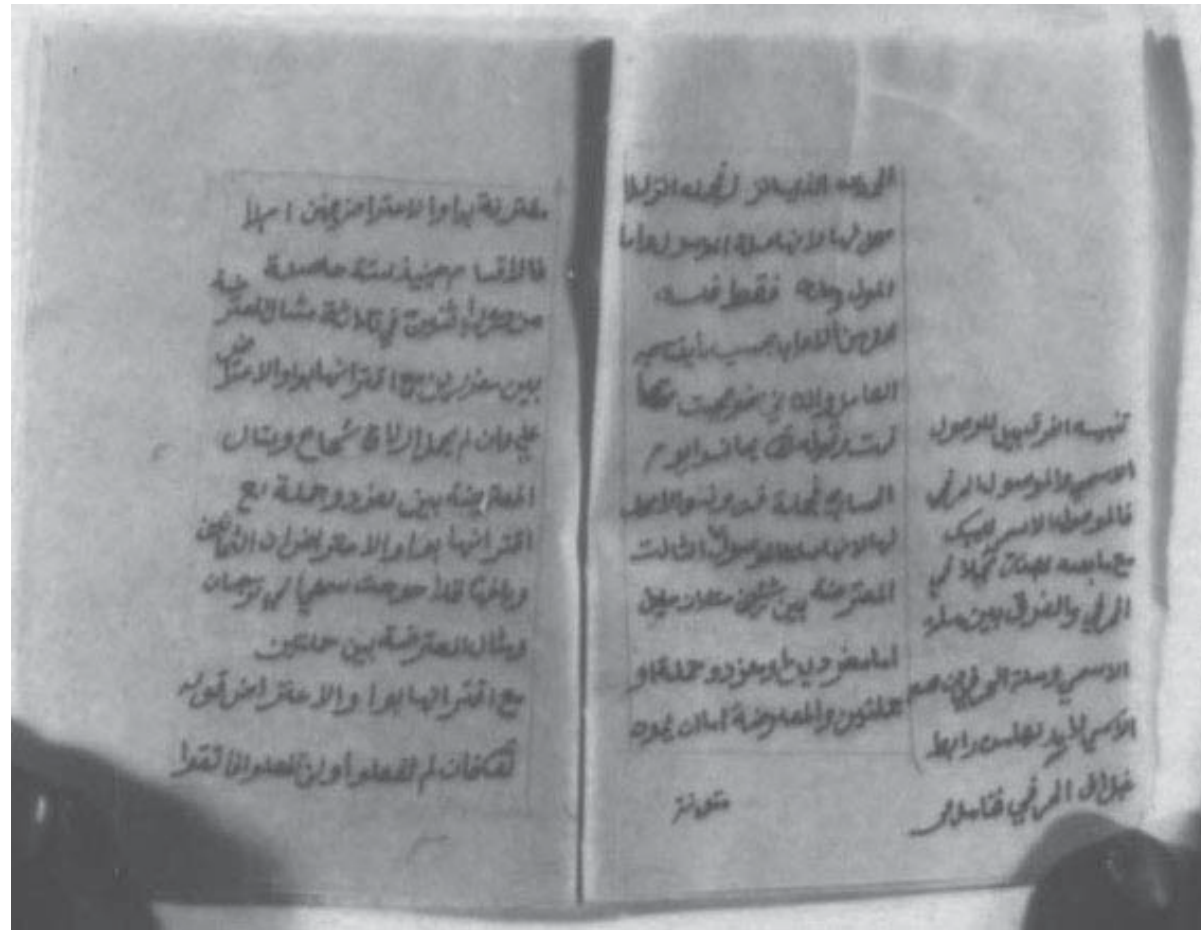 الحمد لله الذي انزل فجملة انزل لا
محل لها لانها صلة الموصول واما
الموصول وحده فقط فله
محل من الاعراب بحسب ما يقتضيه
العامل
بما نسوا يوم
الحساب فجملة نسوا لا محل
لها لانها صلة الموصول الثالث
المعترضة بين شيئين متلازمين
اما مفردين او مفرد وجملة او
جملتين والمعترضة اما ان تكون
مقرونة
تنبيه الفرق بين الموصول
الاسمي والموصول الحرفي
فالموصول الاسمي
مع ما بعده بخلاف
الحرفي والفرق بين صلة
الاسمي وصلة الحرفي ان صلة
الاسمي لا بد لها من رابط
بخلاف الحرفي فتامل
مقترنة بواو الاعتراض
فالاقسام حينئذ ستة حاصلة
من ضرب اثنين في ثلاثة مثال المعترضة
بين مفردين مع اقترانها بواو الاعتراض
علي وان لم يحمل السلاح شجاع ومثال
المعترضة بين مفرد وجملة مع
اقترانها بواو الاعتراض ان الثمانين
وبلغتها قد احوجت سمعي الى ترجمان
ومثال المعترضة بين جملتين
مع اقترانها بواو الاعتراض قوله
تعالى فان لم تفعلوا ولن تفعلوا فاتقوا